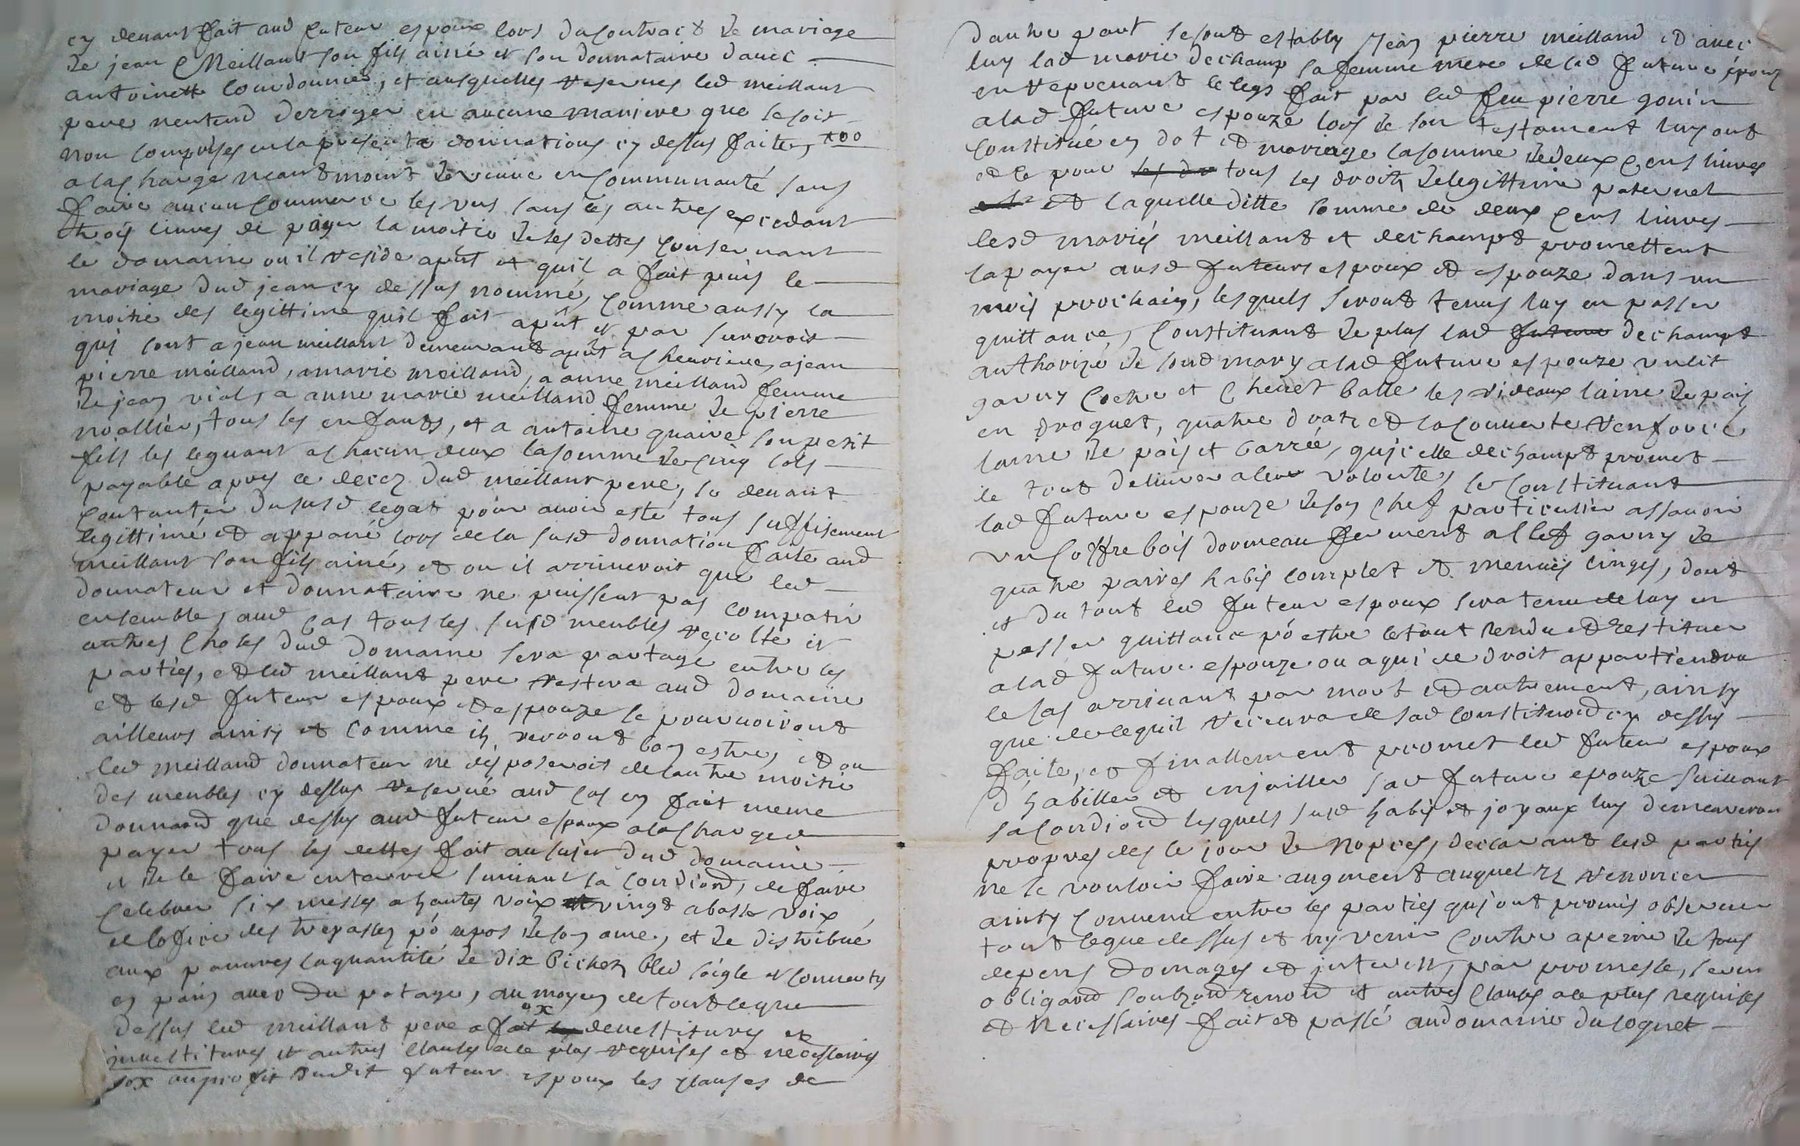 cy devant fait aud futeur espoux lors du contract de mariage
de jean Meilland son fils ainé et son donnataire davec
antoinette lourdonnier, et ausquelles reserves led meillant
pere nentend derroger en aucune maniere que le soit
non comprises en la presente donnations cy dessus faite,
a la charge neantmoint de vivre en communauté sans
faire aucun commerce les uns sans les autres excedant
trois livres de payer la moitié de les dettes consernant
le domaine ou il reside aput et quil a fait puis le
mariage dud jean cy dessus nommé, comme aussy la
moitié des legittime quil fait aput et par
qui sont a jean meillant demeurant aput a cheuriere, a jean
pierre meilland, a marie meilland, a anne meilland femme
de jean vial, a anne marie meilland femme de pierre
noallier, tous les enfants, et a antoine quaire son petit
fils les leguant a chacun deux la somme de cinq sols
payable apres ce decez dud meillant pere, se devant
contanter du susd legat pour avoir esté tous suffisement
legittimé et appané lors de la susd donnation faite aud
meillant son fils ainé, et ou il arriveroit que led
donnateur et donnataire ne puissent pas compatir
ensemble, aud cas tous les susd meubles recolte et
autres choses dud domaine sera partagé entre les
parties, et led meillant pere restera aud domaine
et lesd futeur espoux et espouze se pourvoiront
ailleurs ainsy et comme ils verront bon estre, et ou
led meilland donnateur ne disposeroit de lautre moitié
des meubles cy dessus reservé aud cas en fait meme
donnaon que dessus aud futeur espoux a la charge de
payer tous les dettes fait au sujet dud domaine
et de le faire enterrer suivant sa condiond, de faire
celebrer six messes a hautes voix vingt a basse voix
et lofice des trepasses po repos de son ame, et de distribué
aux pauvres la quantité de dix bichets bled seigle et converty
en pain avec du potage, au moyen de tout ce que
dessus led meillant pere a fait devestitures et
investitures et autres clauses a ce plus requises et necessaires
au profit dudit futeur espoux les clauses de
dautre part se sont establly Jean pierre meilland et avec
luy lad marie dechamp sa femme mere de lad future epouz
en reprenant le legs fait par led feu pierre gonin
a lad future espouze lors de son testament luy ont
constitué en dot et mariage la somme de deux cens livres
et ce pour tous les droits de legittime paternel
et laquelle ditte somme de deux cens livres
lesd mariés meillant et dechampt promettent
la payer ausd futeurs espoux et espouze dans un
mois prochain, lesquels seront tenus luy en passer
quittance, constituant de plus lad dechampt
authorizé de sond mary a lad future espouze un lit
garny coetre et chevet balle les rideaux laine de pais
en droguet, quatre draps et la couverte
laine de pais et carrée, qu'icelle dechampt promet
le tout delivrer a leur volonté, se constituant
lad future espouze de son chef particulier assavoir
un coffre bois dormeau fermant a clef garny de
quatre paires habis complet et menues linges, dont
et du tout led futeur espoux sera tenu de luy en
passer quittance po estre le tout rendu et restituer
a lad future espouze ou a qui de droit appartiendra
le cas arrivant par mort et autrement, ainsy
que de ce quil recevra de sad constituond cy dessus
faite, et finallement promet led futeur espoux
d'habiller et enjoailler sad future epouze suivant
sa condiond lesquels susd habis et joyaux luy demeureront
propres des le jour de nopces, declarant lesd parties
ne se vouloir faire augment auquel ils renoncer
ainsy convenu entre les parties qui ont promis observer
tout ce que dessus et ny venir contre a peine de tous
depens domages et interests, par promesse, serm
obligaond soubzond renond et autres clauses a ce plus requises
et necessaires fait et passé au domaine du soquet